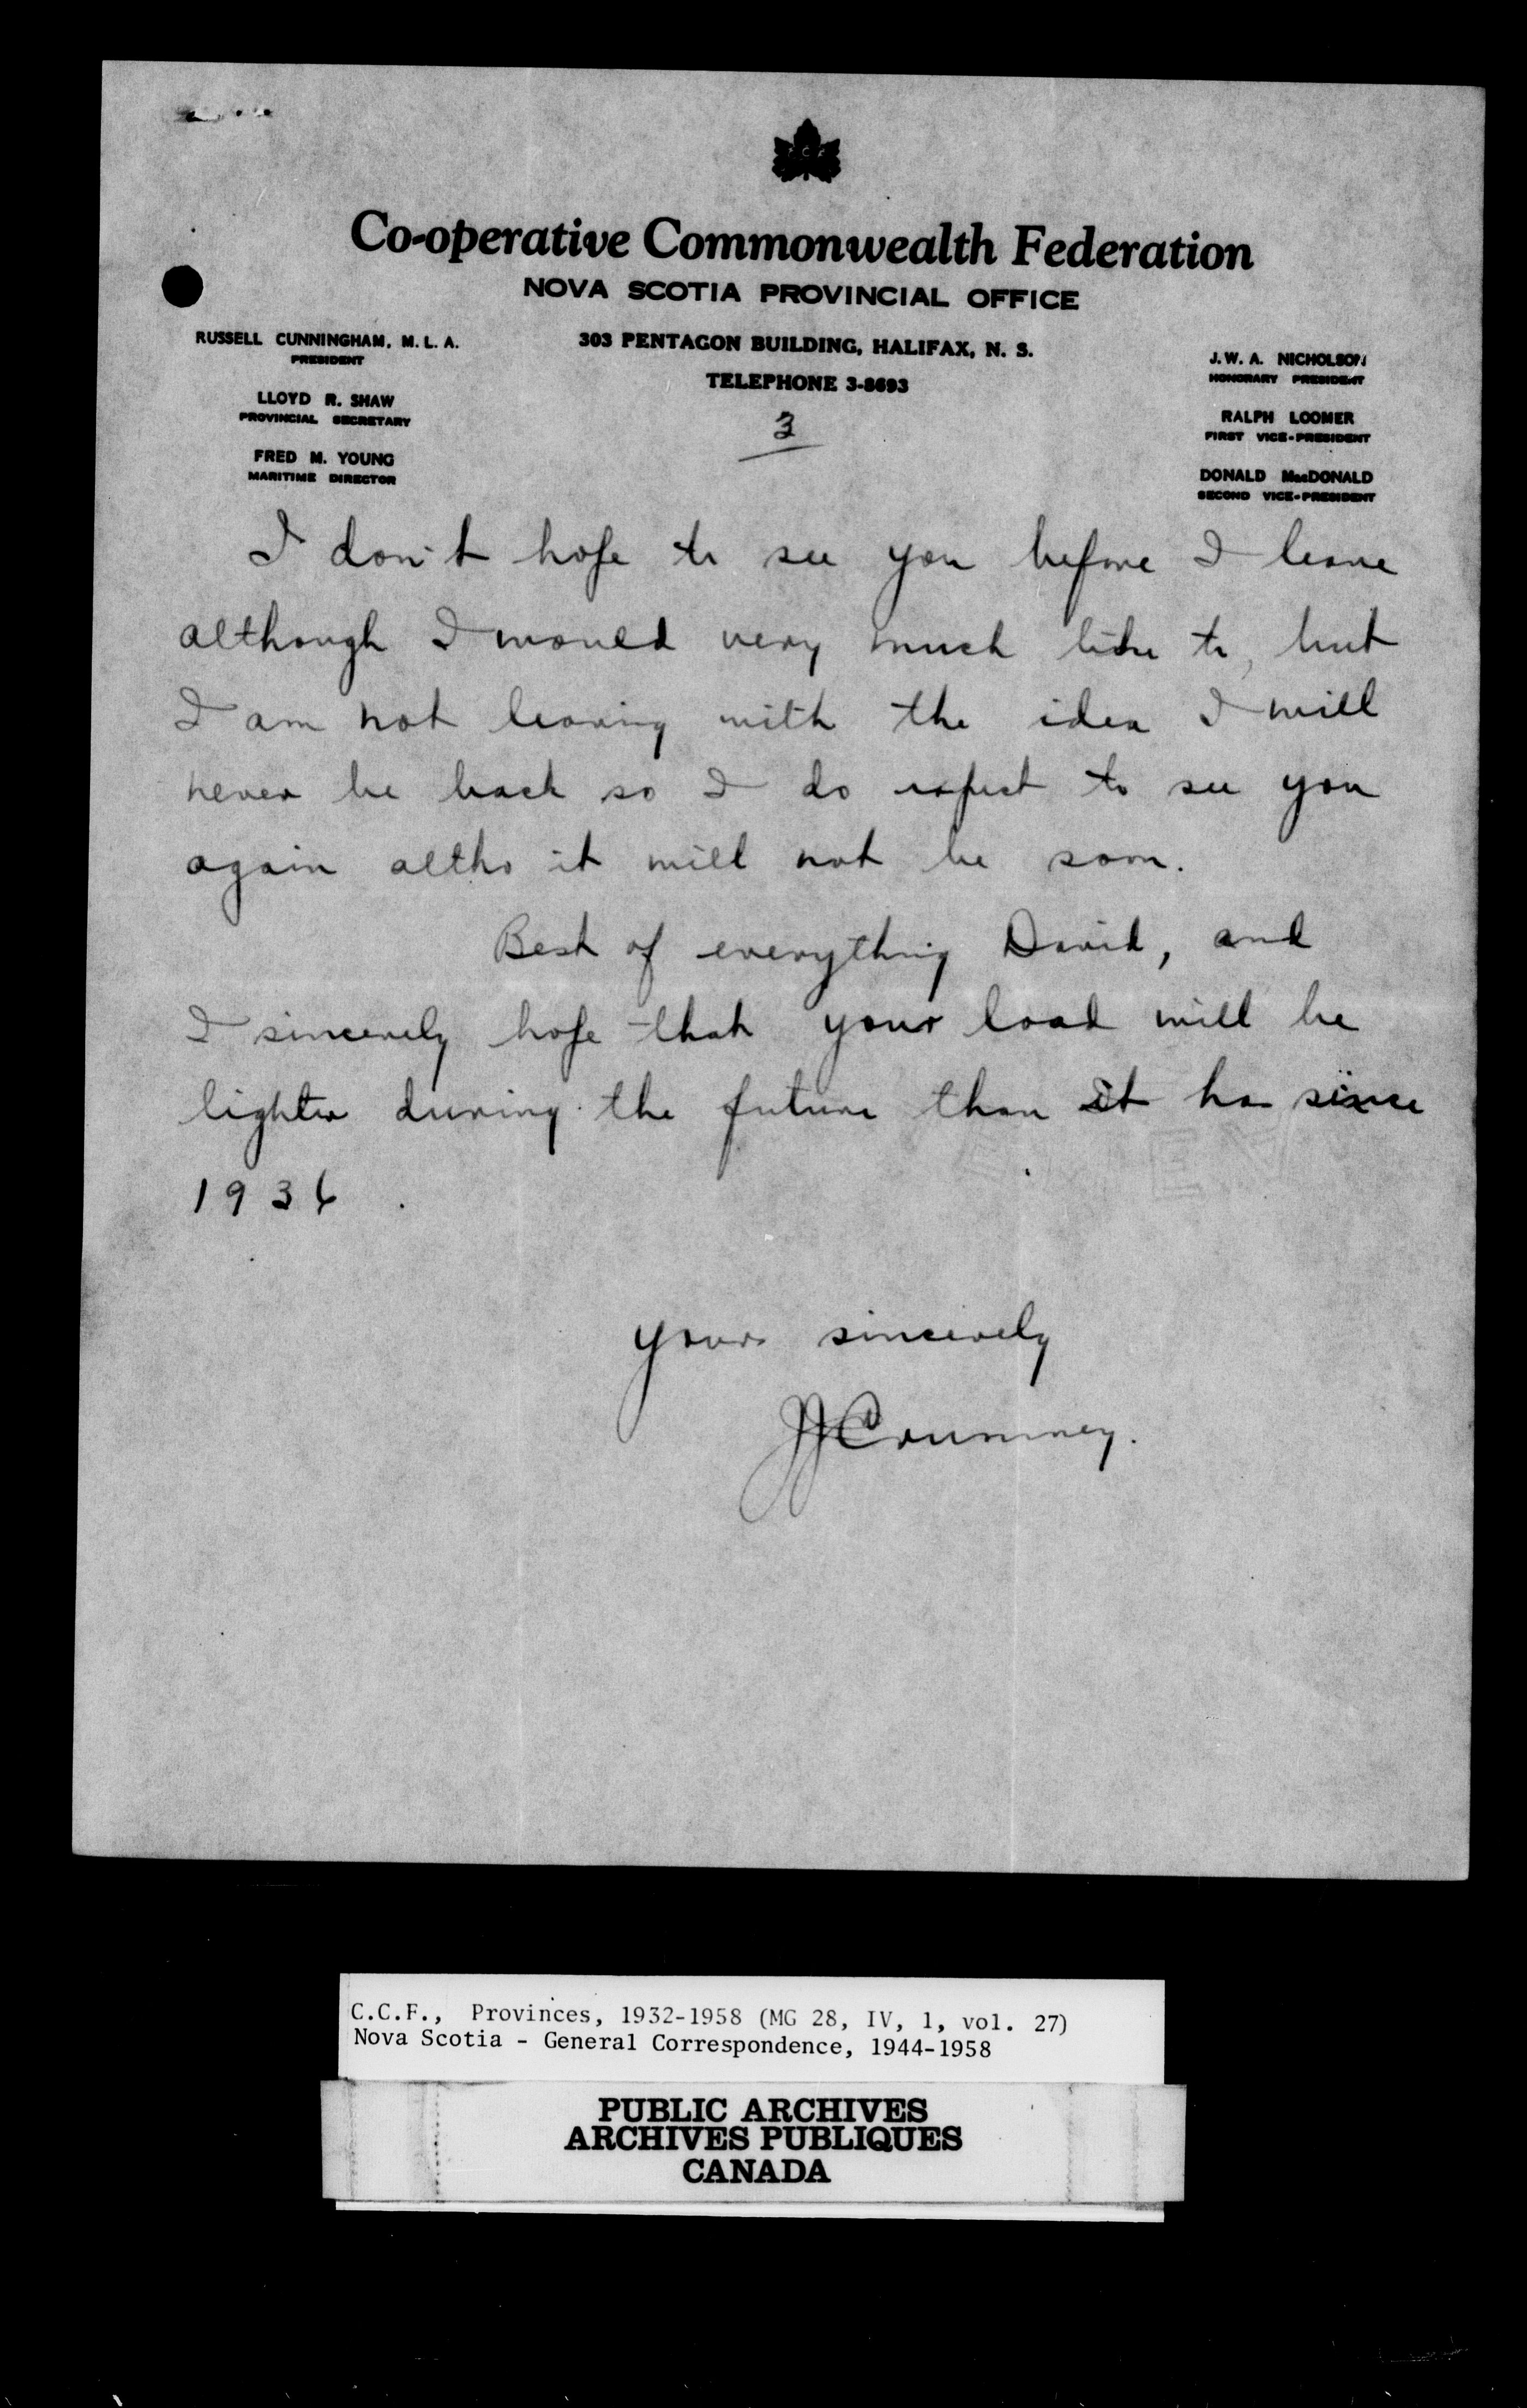 Co-operative Commonwealth Federation
NOVA SCOTIA PROVINCIAL OFFICE
303 PENTAGON BUILDING, HALIFAX, N. S.
TELEPHONE 3-8693
RUSSELL CUNNINGHAM, M. L. A.
PRESIDENT
LLOYD R. SHAW
PROVINCIAL SECRETARY
FRED M. YOUNG
MARITIME DIRECTOR
J. W. A. NICHOLSON
HONORARY PRESIDENT
RALPH LOOMER
FIRST VICE-PRESIDENT
DONALD MacDONALD
SECOND VICE-PRESIDENT
3
I don't hope to see you before I leave
although I would very much like to, but
I am not leaving with the idea I will
never be back so I do expect to see you
again altho it will not be soon.
Best of everything David, and
I sincerely hope that your load will be
lighter during the future than it has since
1936.
yours sincerely
C.C.F., Provinces, 1932-1958 (MG 28, IV, 1, vol. 27)
Nova Scotia - General Correspondence, 1944-1958
PUBLIC ARCHIVES
ARCHIVES PUBLIQUES
CANADA